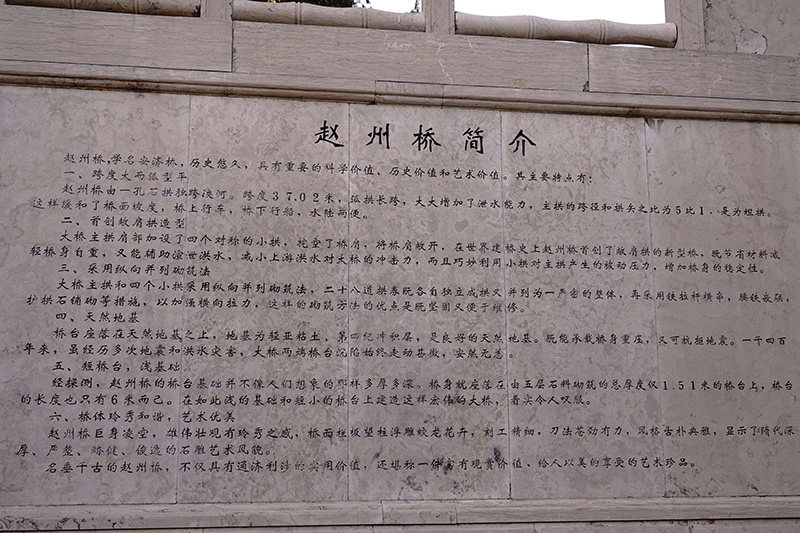 赵州桥简介
赵州桥,学名安济桥,历史悠久,具有重要的科学价值、历史价值和艺术价值。其主要特点有:
一、跨度大而弧型平
赵州桥由一孔石拱独跨洨河。跨度37.02米,弧拱长跨,大大增加了泄水能力,主拱的跨径和拱矢之比为5比1,是为坦拱。
这样缓和了桥面坡度,桥上行车,桥下行船,水陆两便。
二、首创敞肩拱造型
大桥主拱肩部加设了四个对称的小拱,挖空了桥肩,将桥肩敞开,在世界建桥史上赵州桥首创了敞肩拱的新型桥,既节省材料减
轻桥身自重,又能辅助渲泄洪水,减小上游洪水对大桥的冲击力,而且巧妙利用小拱对主拱产生的被动压力,增加桥身的稳定性。
三、采用纵向并列砌筑法
大桥主拱和四个小拱采用纵向并列砌筑法,二十八道拱券既各自独立成拱又并列为一严密的整体,再采用铁拉杆横串,腰铁嵌联,
护拱石铺砌等措施,以加强横向拉力,这样的砌筑方法的优点是既坚固又便于维修。
四、天然地基
桥台座落在天然地基之上,地基为轻亚粘土、第四纪冲积层,是良好的天然地基。既能承载桥身重压,又可抗拒地震。一千四百
年来,虽经历多次地震和洪水灾害,大桥两端桥台沉陷始终走动甚微,安然无恙。
五、短桥台,浅基础
经探测,赵州桥的桥台基础并不像人们想象的那样多厚多深。桥身就座落在由五层石料砌筑的总厚度仅1.51米的桥台上,桥台
的长度也只有6米而已。在如此浅的基础和短小的桥台上建造这样宏伟的大桥,着实令人叹服。
六、桥体玲秀和谐,艺术优美
赵州桥巨身凌空,雄伟壮观有玲秀之感,桥面栏板望柱浮雕蛟龙花卉,刻工精细,刀法苍劲有力,风格古朴典雅,显示了隋代深
厚、严整、矫健、俊逸的石雕艺术风貌。
名垂千古的赵州桥,不仅具有通济利涉的实用价值,还堪称一件富有观赏价值、给人以美的享受的艺术珍品。